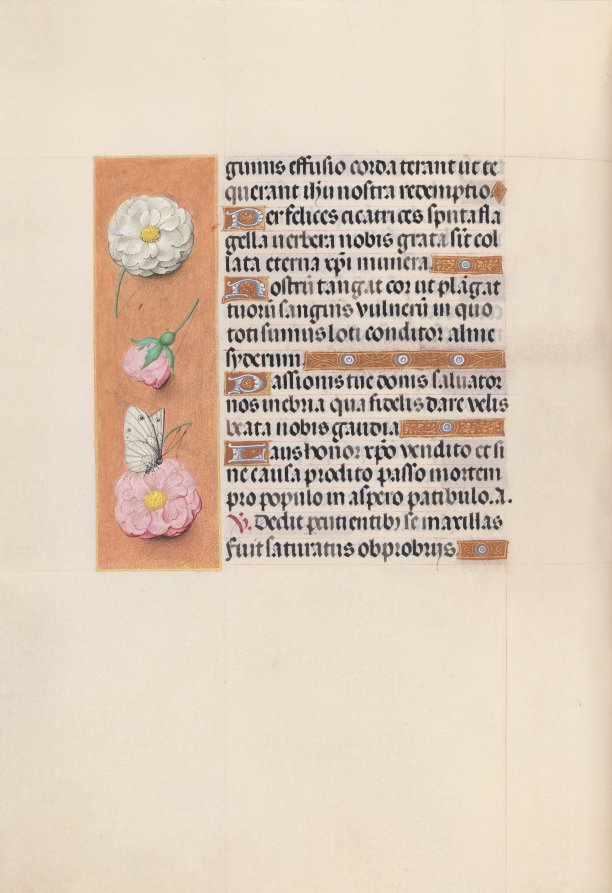 guinis effusio corda terant ut te
querant ihu nostra redemptio.
Per felices cicatrices sputa fla
gella uerbera nobis grata sīt col
lata eterna xp̄i munera.
Nostrū tangat cor ut plāgat
tuorū sanguis vulnerū in quo
toti sumus loti conditor alme
syderum.
Passionis tue donis saluator
nos inebria qua fidelis dare velis
beata nobis gaudia.
Laus honor xp̄o vendito et si
ne causa prodito passo mortem
pro populo in aspero patibulo. A.
V. Dedit percutientibꝫ se maxillas
fuit saturatus obprobrijs.